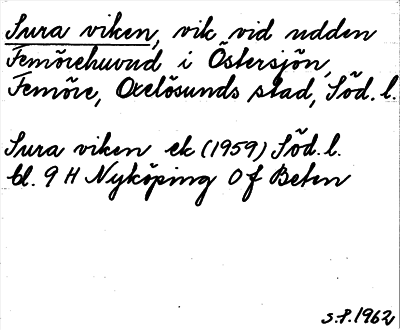 Sura viken, vik vid udden
Femörehuvud i Östersjön,
Femöre, Oxelösunds stad, Söd. l.
Sura viken ek (1959) Söd. l.
bl. 9 H Nyköping Of Beten
S.P. 1962